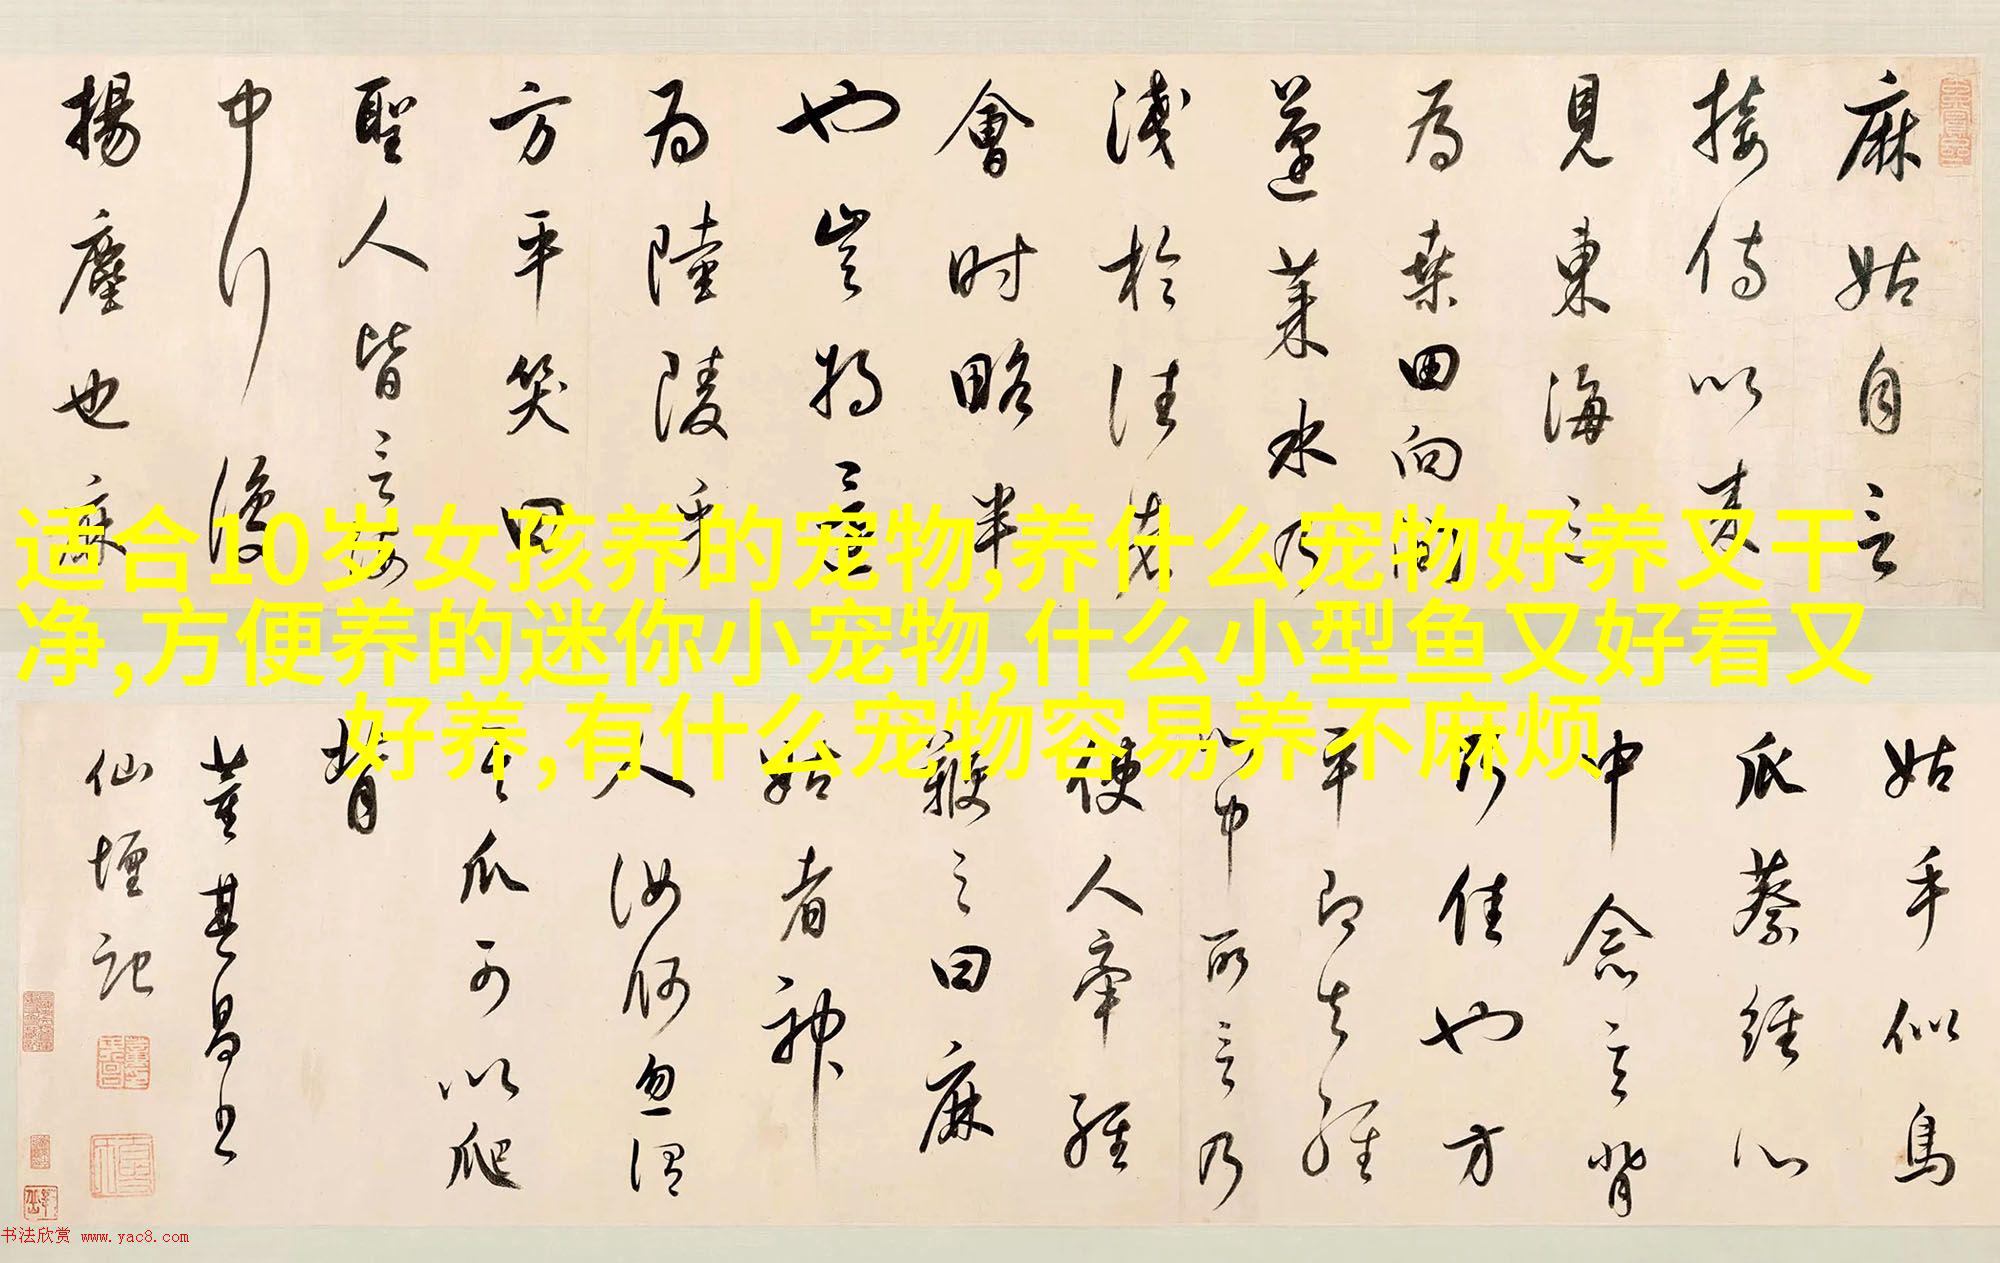 麻姑自言
接侍以来
見東海三
為桑田向間
蓬莱水乃
浅於往者
會时略半
也豈将復
為陸陵乎
方平笑曰
聖人皆言海
中行復
揚塵也麻
姑手似鳥
爪蔡經心
中念言背
痒時得此爪以爬背乃佳也方
平即知經
心中所言乃
使人牵經
鞭之曰麻
姑者神
人汝何忽謂
其爪可以爬
背
董其昌書
仙壇記
适合10岁女孩养的宠物,养什么宠物好养又干
净,方便养的迷你小宠物,什么小型鱼又好看又
好养,有什么宠物容易养不麻烦
书法欣赏 www.yac8.com